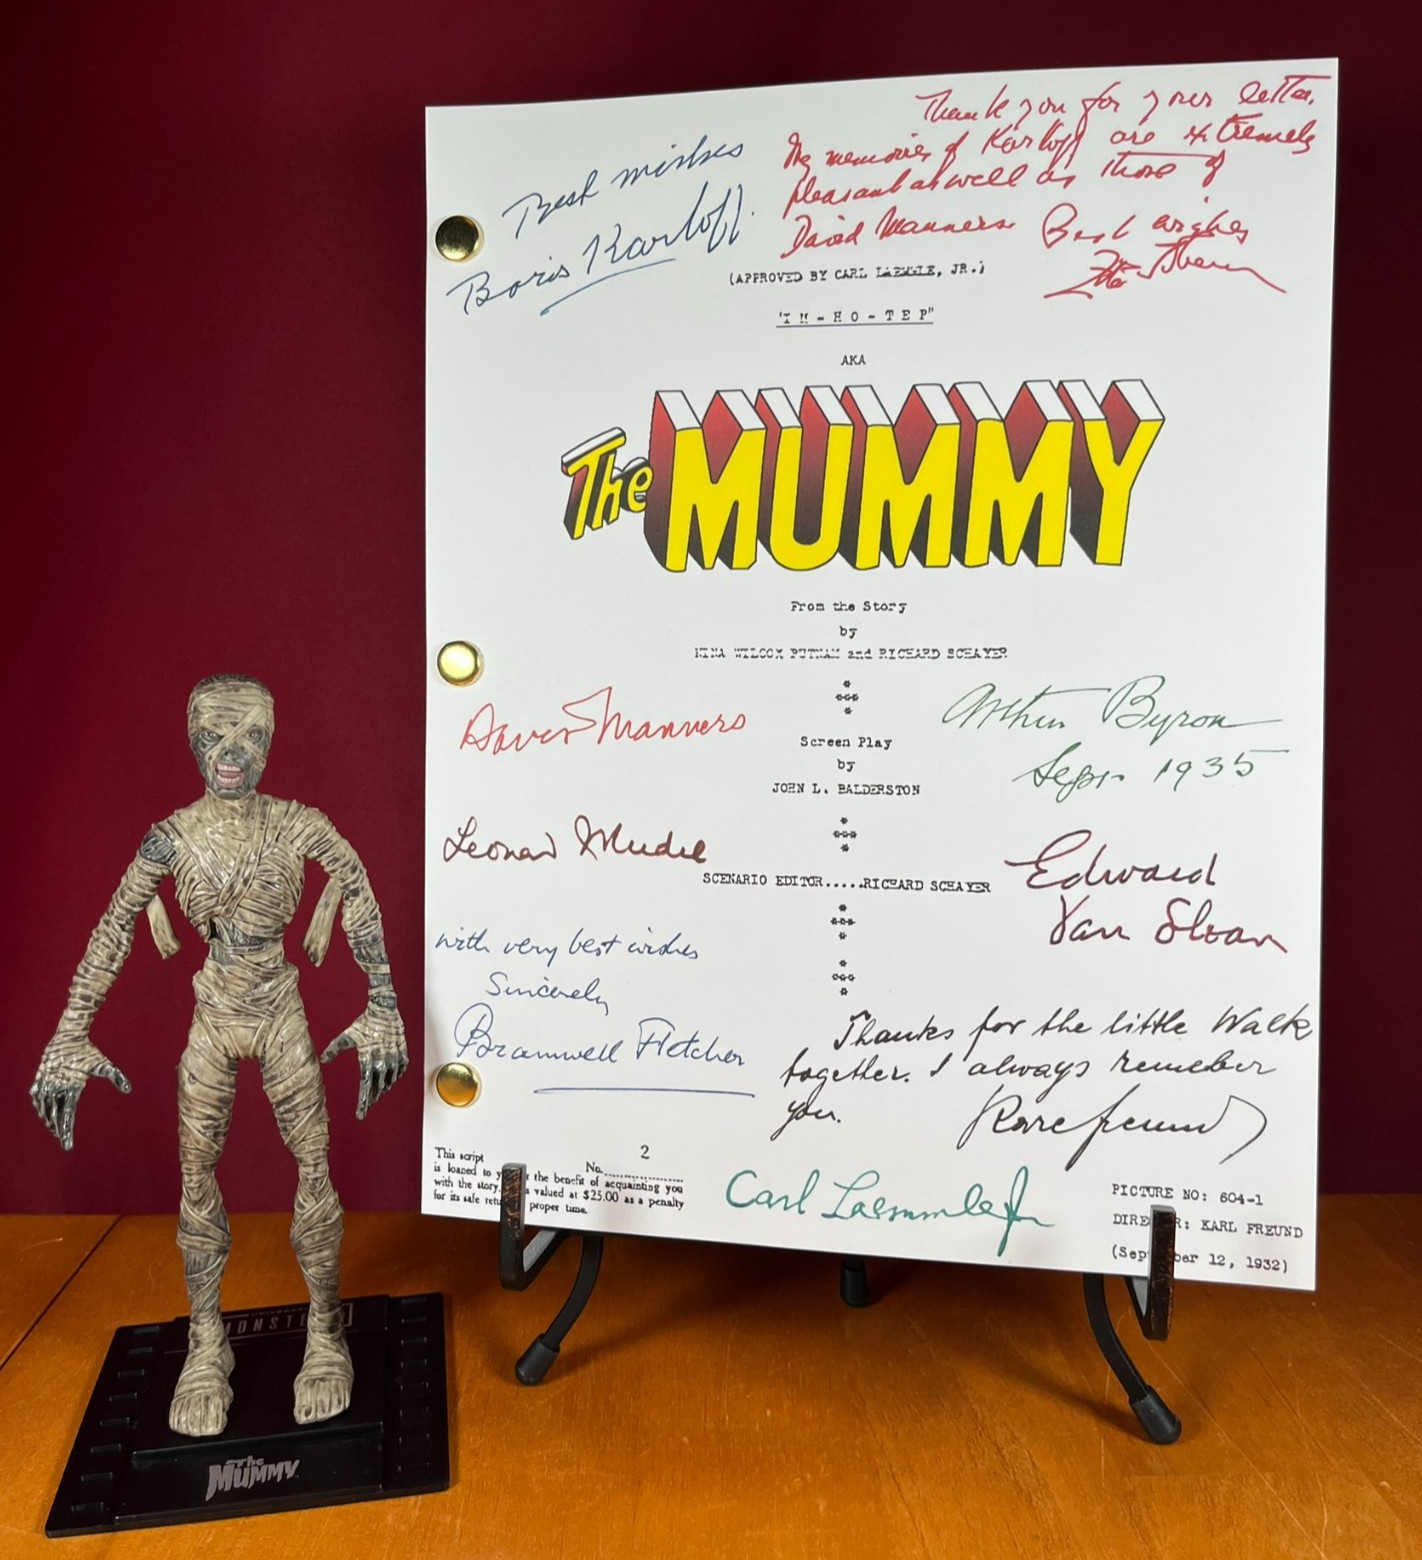 Thank you for your letter.
My memories of Karloff are extremely
pleasant as well as those of
David Manners. Best wishes
Best wishes
Boris Karloff.
(APPROVED BY CARL LAEMMLE, JR.)
"I M - H O - T E P"
AKA
The MUMMY
From the Story
by
NINA WILCOX PUTNAM and RICHARD SCHAYER
David Manners
Arthur Byron
Sept. 1935
Screen Play
by
JOHN L. BALDERSTON
Leonard Mudie
SCENARIO EDITOR.....RICHARD SCHAYER
Edward
Van Sloan
with very best wishes
Sincerely
Bramwell Fletcher
Thanks for the little Walk
together. I always remeber
you.
Karl Freund
2
No.
This script
is loaned to the benefit of acquainting you
with the story. valued at $25.00 as a penalty
for its safe proper time.
Carl Laemmle Jr
PICTURE NO: 604-1
KARL FREUND
12, 1932)
MONSTE
The
MUMMY